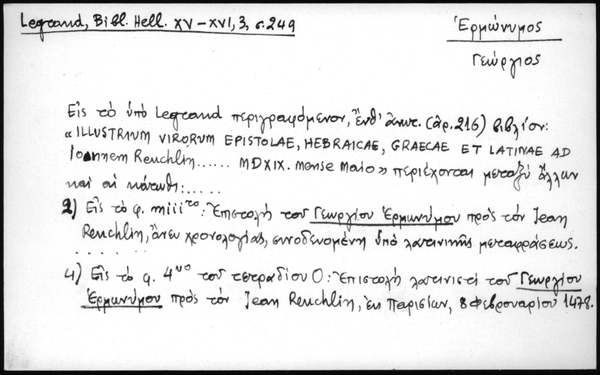 Legrand, Bibl. Hell. XV-XVI, 3, σ. 249
Ἑρμώνυμος
Γεώργιος
Εἰς τὸ ὑπὸ Legrand περιγραφόμενον, ἔνθ' ἀνωτ. (ἀρ. 216) βιβλίον:
«ILLUSTRIUM VIRORUM EPISTOLAE, HEBRAICAE, GRAECAE ET LATINAE AD
Ioannem Reuchlin...... MDXIX. Mense Maio» περιέχονται μεταξὺ ἄλλων
καὶ αἱ κάτωθι:.....
2) Εἰς τὸ φ. miii το: Ἐπιστολὴ τοῦ Γεωργίου Ἑρμωνύμου πρὸς τὸν Jean
Reuchlin, ἄνευ χρονολογίας, συνοδευομένη ὑπὸ λατινικῆς μεταφράσεως.
. . . . .
4) Εἰς τὸ φ. 4 νο τοῦ τετραδίου O: Ἐπιστολὴ λατινιστὶ τοῦ Γεωργίου
Ἑρμωνύμου πρὸς τὸν Jean Reuchlin, ἐκ Παρισίων, 8 Φεβρουαρίου 1478.